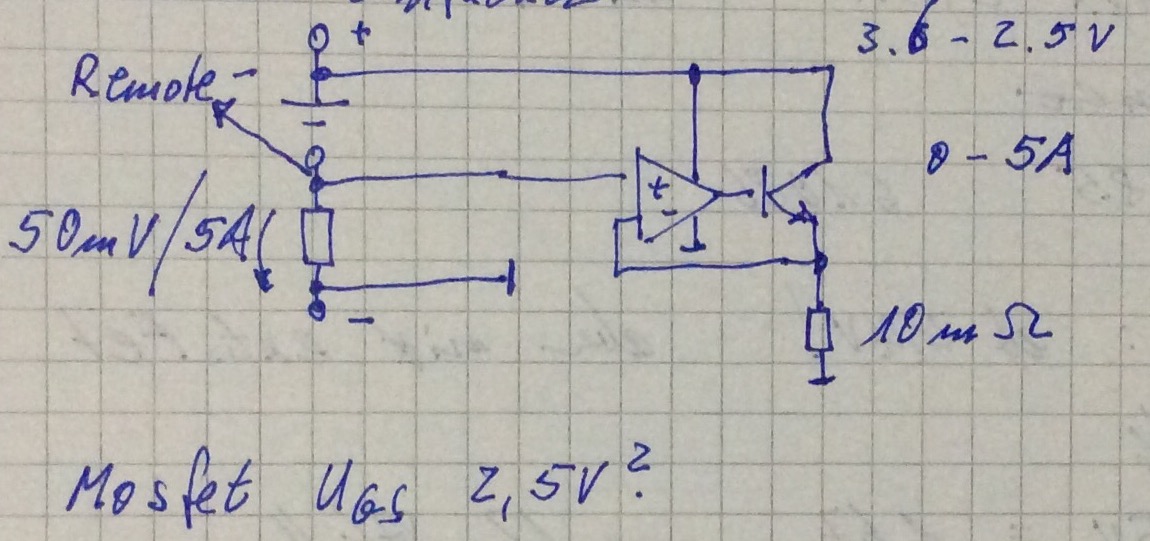 +
3.6 - 2.5 V
Remote -
-
0 - 5A
+
-
50mV/5A
-
10mΩ
Mosfet UGS 2,5V?